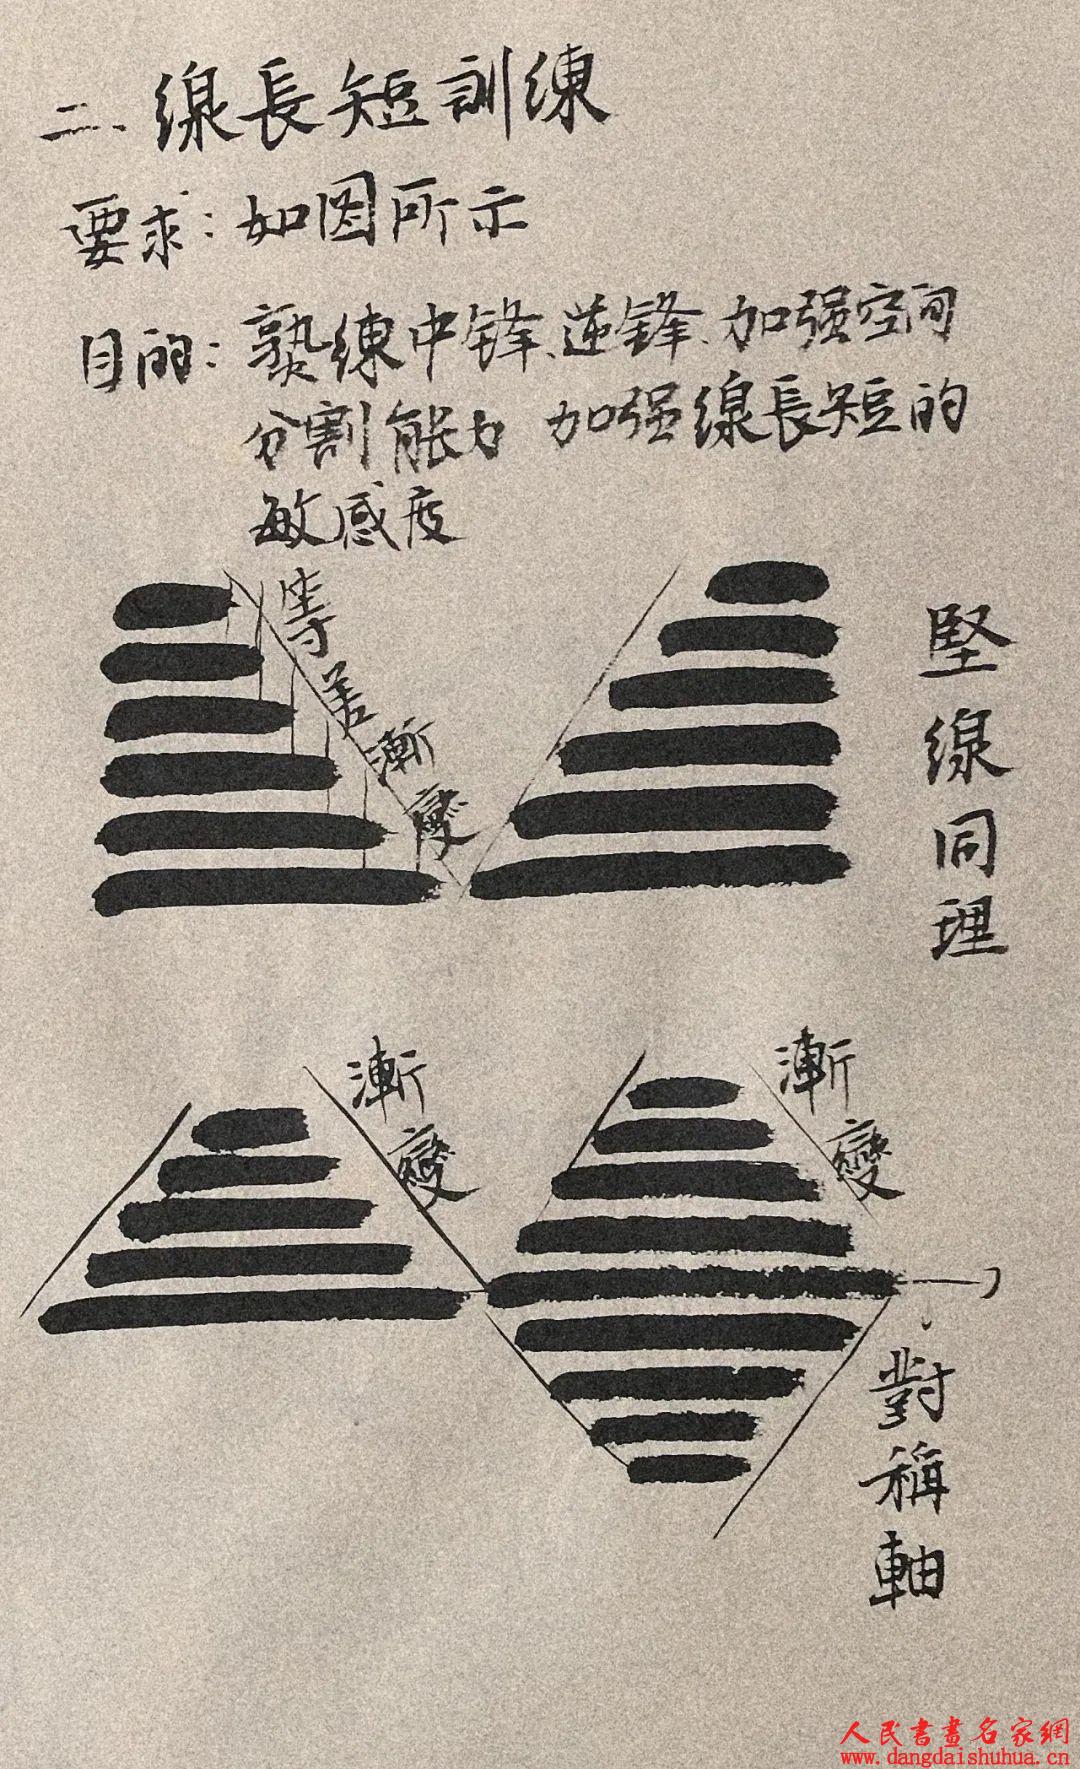 二、線長短訓練
要求：如图所示
目的：熟練中锋、逆锋、加强空间
分割能力 加强線長短的
敏感度
等差漸變
竪線同理
漸變
漸變
對稱軸
人民書畫名家網
www.dangdaishuhua.cn